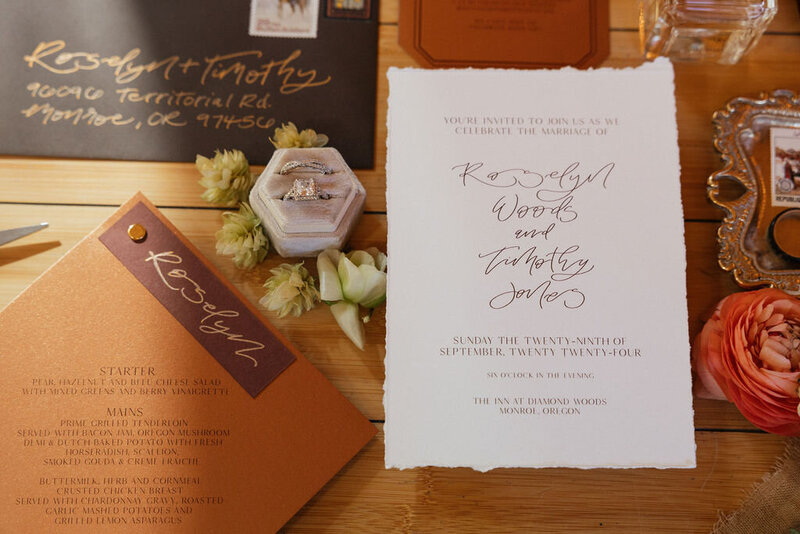 Roselyn + Timothy
96096 Territorial Rd.
Monroe, OR 97456
YOU'RE INVITED TO JOIN US AS WE
CELEBRATE THE MARRIAGE OF
Roselyn
Woods
and
Timothy
Jones
SUNDAY THE TWENTY-NINTH OF
SEPTEMBER, TWENTY TWENTY-FOUR
SIX O'CLOCK IN THE EVENING
THE INN AT DIAMOND WOODS
MONROE, OREGON
Roselyn
STARTER
PEAR, HAZELNUT AND BLEU CHEESE SALAD
WITH MIXED GREENS AND BERRY VINAIGRETTE
MAINS
PRIME GRILLED TENDERLOIN
SERVED WITH BACON JAM, OREGON MUSHROOM
DEMI & DUTCH BAKED POTATO WITH FRESH
HORSERADISH, SCALLION,
SMOKED GOUDA & CREME FRAICHE
BUTTERMILK, HERB AND CORNMEAL
CRUSTED CHICKEN BREAST
SERVED WITH CHARDONNAY GRAVY, ROASTED
GARLIC MASHED POTATOES AND
GRILLED LEMON ASPARAGUS